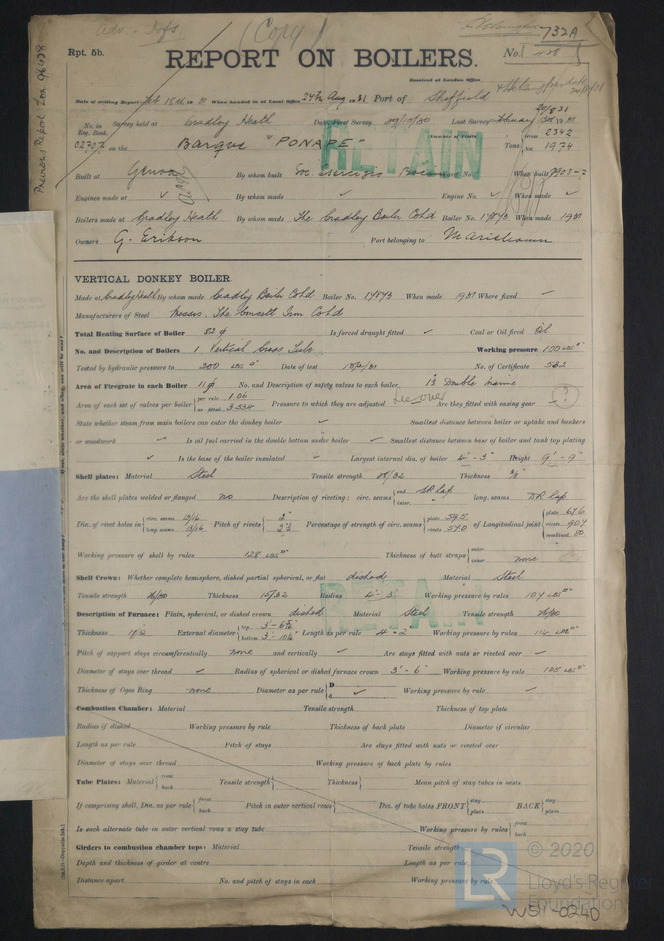 (Copy)
732A
Rpt. 5b.
REPORT ON BOILERS.
No.
Received at London Office
Date of writing Report When handed in at Local Office 24th Aug 1931 Port of Sheffield
No. in Reg. Book. Survey held at Cradley Heath Date, First Survey 29/10/30 Last Survey
Number of Visits
02707 on the Barque "PONAPE" Tons from 2342 1974
RETAIN
Built at Genoa By whom built When built 1903-2
Engines made at ✓ By whom made ✓ Engine No. ✓ When made ✓
Boilers made at Cradley Heath By whom made The Cradley Boiler Co Ld Boiler No. When made 1931
Owners G. Erikson Port belonging to Mariehamn
VERTICAL DONKEY BOILER.
Made at Cradley Heath By whom made Cradley Boiler Co Ld Boiler No. When made 1931 Where fixed —
Manufacturers of Steel Messrs. The Consett Iron Co Ld
Total Heating Surface of Boiler 82 Is forced draught fitted ✓ Coal or Oil fired Oil
No. and Description of Boilers 1 Vertical Cross Tube Working pressure 100 LBS
Tested by hydraulic pressure to 200 LBS Date of test No. of Certificate 532
Area of Firegrate in each Boiler 11 No. and Description of safety valves to each boiler
Area of each set of valves per boiler per rule 1.06 as fitted 3.534 Pressure to which they are adjusted See over Are they fitted with easing gear ?
State whether steam from main boilers can enter the donkey boiler ✓ Smallest distance between boiler or uptake and bunkers
or woodwork ✓ Is oil fuel carried in the double bottom under boiler ✓ Smallest distance between base of boiler and tank top plating
✓ Is the base of the boiler insulated ✓ Largest internal dia. of boiler 4'-3" Height 9'-9"
Shell plates: Material Steel Tensile strength 28/32 Thickness 3/8"
Are the shell plates welded or flanged no Description of riveting: circ. seams end SR lap inter. long. seams DR lap
Dia. of rivet holes in circ. seams 13/16 long. seams 13/16 Pitch of rivets 2" 2½ Percentage of strength of circ. seams plate 59.5 rivets of Longitudinal joint plate 67.6 rivets 90.7 combined 80
Working pressure of shell by rules 128 LBS Thickness of butt straps outer inner none
Shell Crown: Whether complete hemisphere, dished partial spherical, or flat dished Material Steel
Tensile strength 26/30 Thickness 15/32 Radius 4'-3" Working pressure by rules 107 LBS
RETAIN
Description of Furnace: Plain, spherical, or dished crown dished Material Steel Tensile strength 26/30
Thickness 17/32 External diameter top 3'-6½ bottom 3'-10½ Length as per rule 4'-2" Working pressure by rules 114 LBS
Pitch of support stays circumferentially none and vertically ✓ Are stays fitted with nuts or riveted over —
Diameter of stays over thread ✓ Radius of spherical or dished furnace crown 3'-6 Working pressure by rule 105 LBS
Thickness of Ogee Ring none Diameter as per rule D d ✓ Working pressure by rule —
Combustion Chamber: Material Tensile strength Thickness of top plate
Radius if dished Working pressure by rule Thickness of back plate Diameter if circular
Length as per rule Pitch of stays Are stays fitted with nuts or riveted over
Diameter of stays over thread Working pressure of back plate by rules
Tube Plates: Material front back Tensile strength Thickness Mean pitch of stay tubes in nests
If comprising shell, Dia. as per rule front back Pitch in outer vertical rows Dia. of tube holes FRONT stay plain BACK stay plain
Is each alternate tube in outer vertical rows a stay tube Working pressure by rules front back
Girders to combustion chamber tops: Material Tensile strength
Depth and thickness of girder at centre Length as per rule
Distance apart No. and pitch of stays in each Working pressure by rule
LR
© 2020
Lloyd's Register
Foundation
WS11-0240